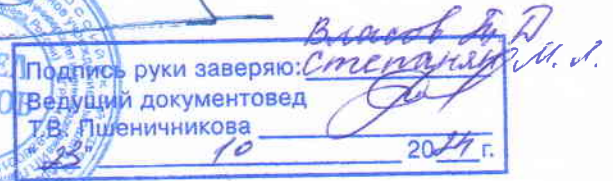 Власов Т. Д
Подпись руки заверяю: Степанян М. Л.
Ведущий документовед
Т.В. Пшеничникова
"23" 10 2024 г.